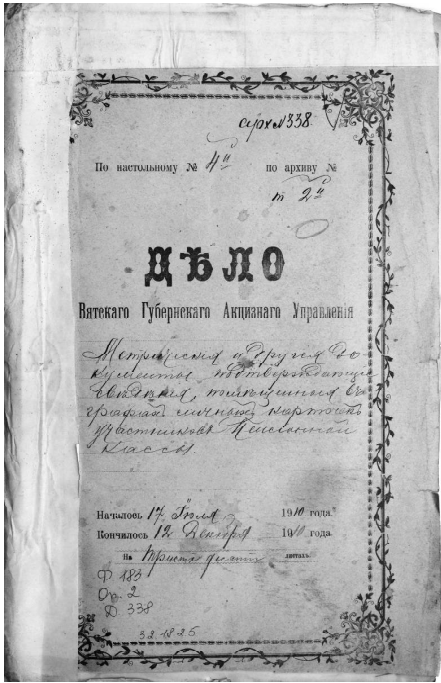 арх № 338
По настольному № 4й по архиву №
т 2й
ДѢЛО
Вятскаго Губернскаго Акцизнаго Управленія
Метрическія и другія до
кументы подтверждающіе
свѣдѣнія, помѣщенныя въ
графахъ личныхъ карточекъ
участниковъ Пенсіонной
Кассы
Началось 17 Іюля 1910 года.
Кончилось 12 Декабря 1910 года.
На триста листахъ
Ф 183
Оп. 2
Д 338